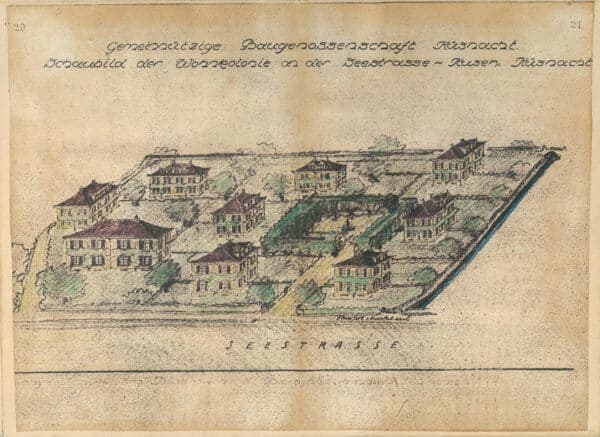 20
21
Gemeinnützige Baugenossenschaft Küsnacht.
Schaubild der Wohnkolonie an der Seestrasse ~ Kusen, Küsnacht
SEESTRASSE